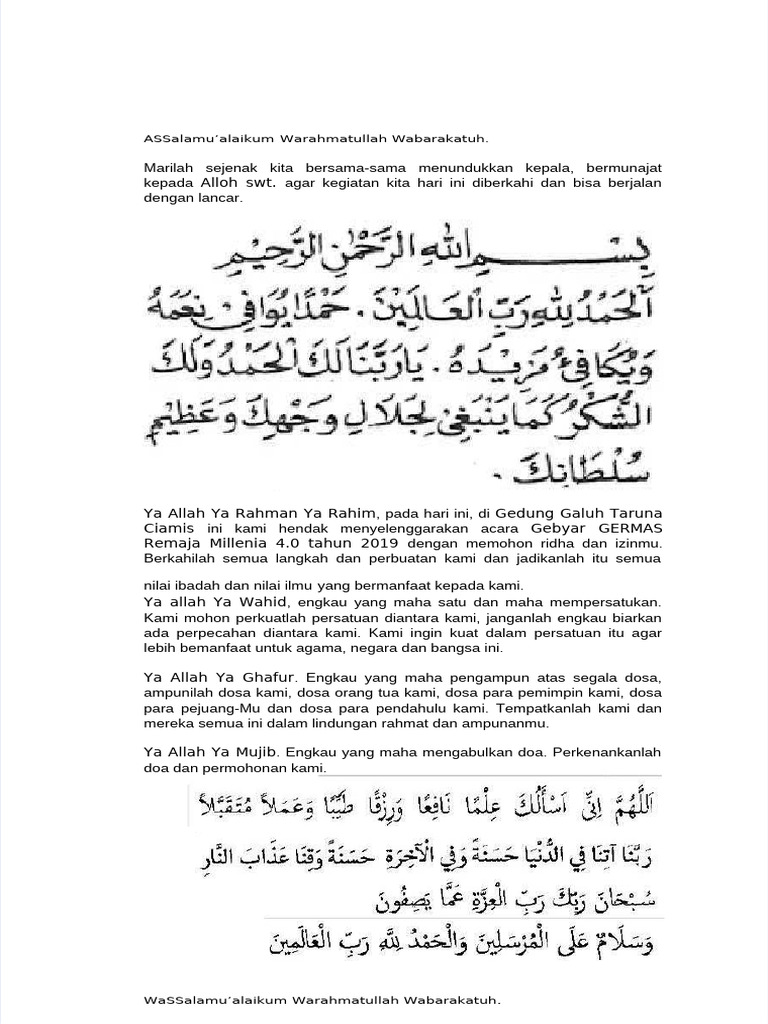 ASSalamu’alaikum Warahmatullah Wabarakatuh.
Marilah sejenak kita bersama-sama menundukkan kepala, bermunajat
kepada Alloh swt. agar kegiatan kita hari ini diberkahi dan bisa berjalan
dengan lancar.
بِسْمِ اللهِ الرَّحْمٰنِ الرَّحِيْمِ
اَلْحَمْدُ لِلّٰهِ رَبِّ الْعَالَمِيْنَ. حَمْدًا يُوَافِيْ نِعَمَهُ
وَيُكَافِئُ مَزِيْدَهُ. يَارَبَّنَا لَكَ الْحَمْدُ وَلَكَ
الشُّكْرُ كَمَا يَنْبَغِيْ لِجَلَالِ وَجْهِكَ وَعَظِيْمِ
سُلْطَانِكَ.
Ya Allah Ya Rahman Ya Rahim, pada hari ini, di Gedung Galuh Taruna
Ciamis ini kami hendak menyelenggarakan acara Gebyar GERMAS
Remaja Millenia 4.0 tahun 2019 dengan memohon ridha dan izinmu.
Berkahilah semua langkah dan perbuatan kami dan jadikanlah itu semua
nilai ibadah dan nilai ilmu yang bermanfaat kepada kami.
Ya allah Ya Wahid, engkau yang maha satu dan maha mempersatukan.
Kami mohon perkuatlah persatuan diantara kami, janganlah engkau biarkan
ada perpecahan diantara kami. Kami ingin kuat dalam persatuan itu agar
lebih bemanfaat untuk agama, negara dan bangsa ini.
Ya Allah Ya Ghafur. Engkau yang maha pengampun atas segala dosa,
ampunilah dosa kami, dosa orang tua kami, dosa para pemimpin kami, dosa
para pejuang-Mu dan dosa para pendahulu kami. Tempatkanlah kami dan
mereka semua ini dalam lindungan rahmat dan ampunanmu.
Ya Allah Ya Mujib. Engkau yang maha mengabulkan doa. Perkenankanlah
doa dan permohonan kami.
اَللَّهُمَّ اِنِّي اَسْأَلُكَ عِلْمًا نَافِعًا وَرِزْقًا طَيِّبًا وَعَمَلاً مُتَقَبَّلاً
رَبَّنَا آتِنَا فِي الدُّنْيَا حَسَنَةً وَفِي الْآخِرَةِ حَسَنَةً وَقِنَا عَذَابَ النَّارِ
سُبْحَانَ رَبِّكَ رَبِّ الْعِزَّةِ عَمَّا يَصِفُونَ
وَسَلَامٌ عَلَى الْمُرْسَلِينَ وَالْحَمْدُ لِلَّهِ رَبِّ الْعَالَمِينَ
WaSSalamu’alaikum Warahmatullah Wabarakatuh.